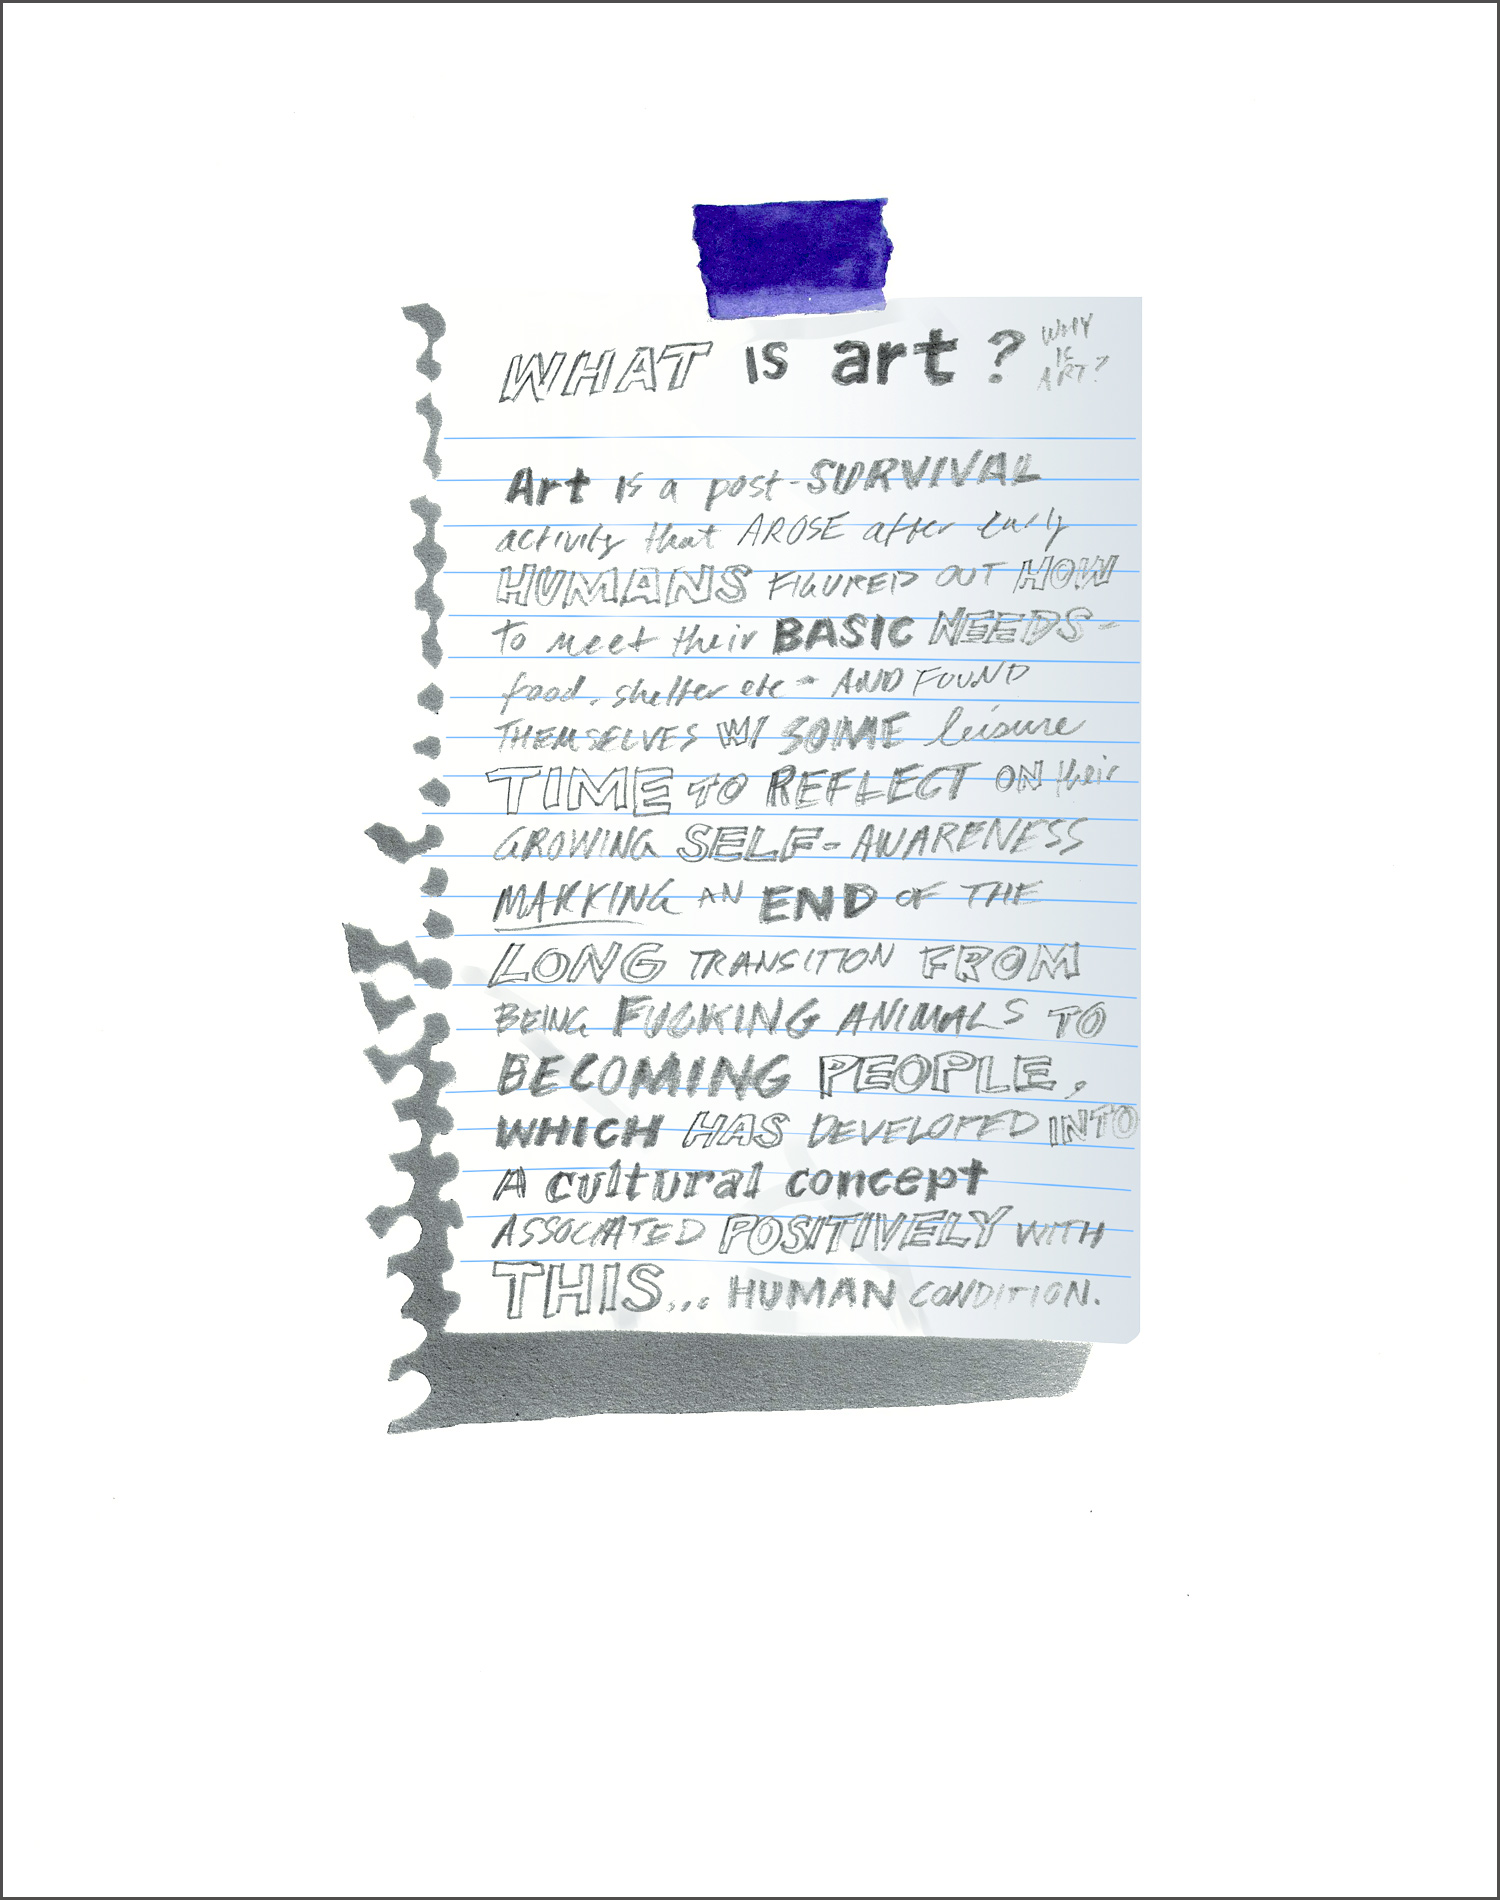 WHAT is art?
WHY
IS
ART?
Art is a post-SURVIVAL
activity that AROSE after early
HUMANS FIGURED OUT HOW
to meet their BASIC NEEDS-
food, shelter etc - AND FOUND
THEMSELVES W/ SOME leisure
TIME TO REFLECT ON their
GROWING SELF-AWARENESS
MARKING AN END OF THE
LONG TRANSITION FROM
BEING FUCKING ANIMALS TO
BECOMING PEOPLE,
WHICH HAS DEVELOPED INTO
A cultural concept
ASSOCIATED POSITIVELY WITH
THIS... HUMAN CONDITION.